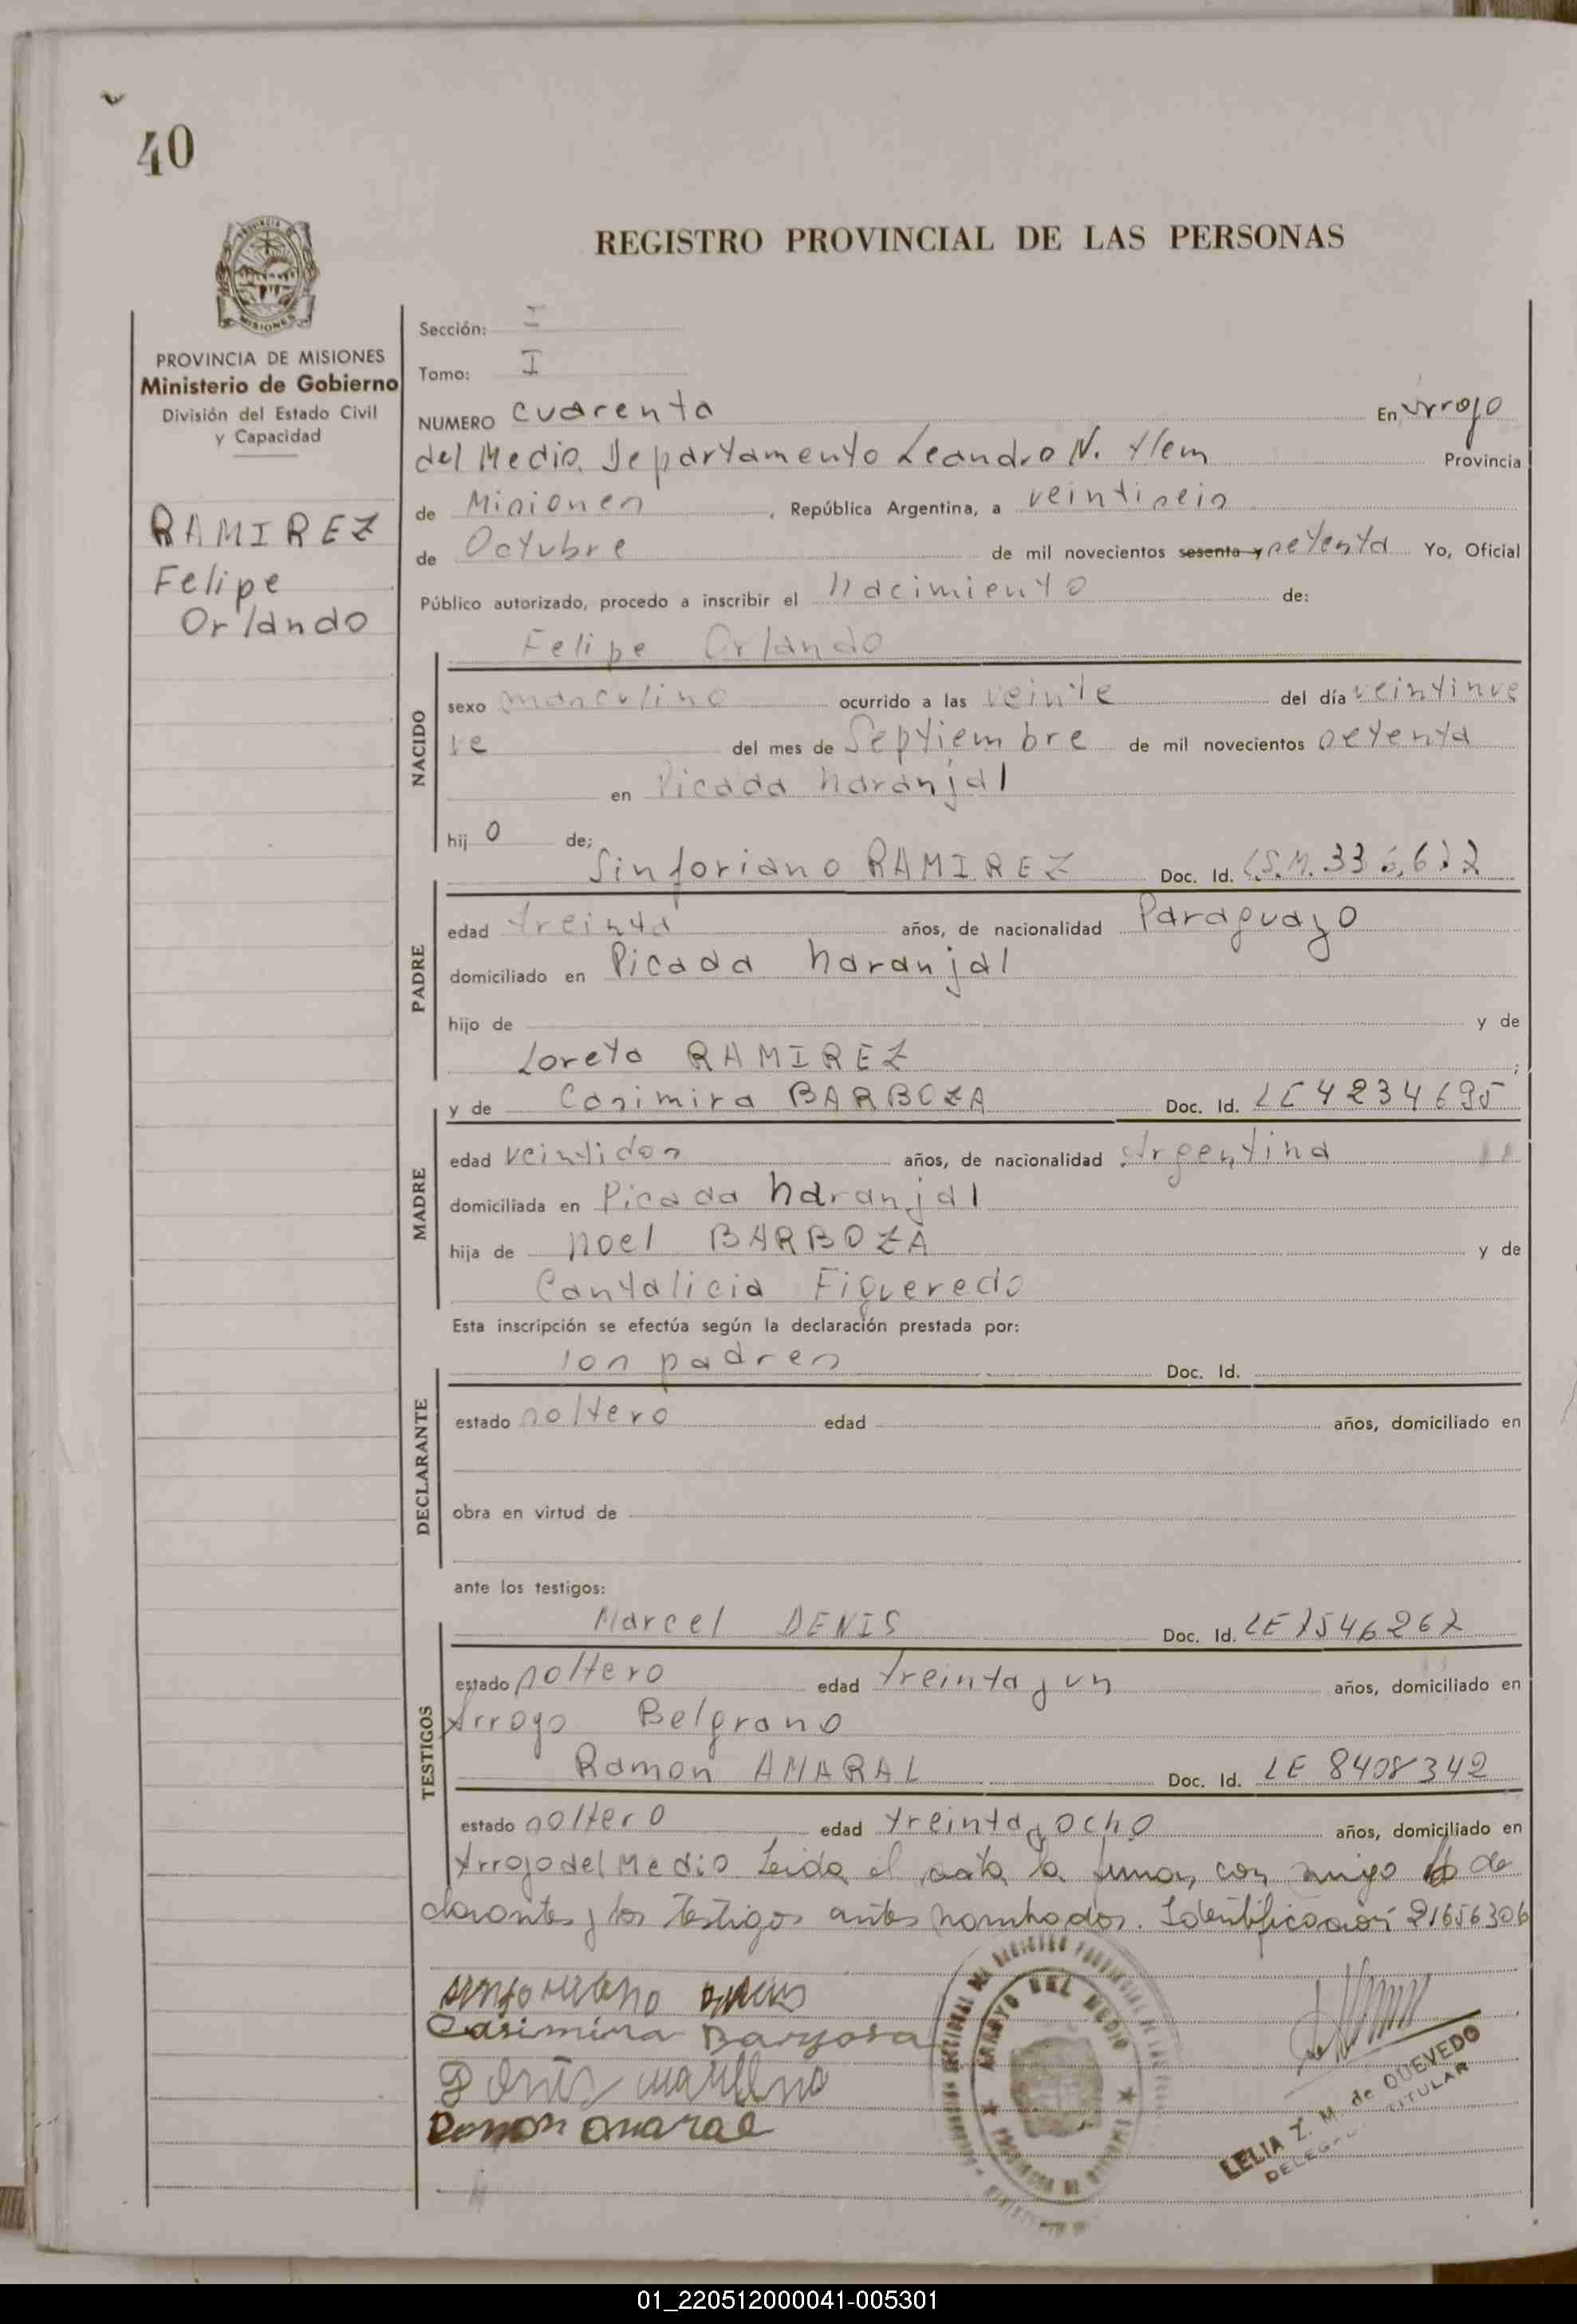 40
REGISTRO PROVINCIAL DE LAS PERSONAS
PROVINCIA DE MISIONES
Ministerio de Gobierno
División del Estado Civil
y Capacidad
RAMIREZ
Felipe
Orlando
Sección: I
Tomo: I
NUMERO cuarenta En Arroyo
del Medio. Departamento Leandro N. Alem Provincia
de Misiones, República Argentina, a veintiseis
de Octubre de mil novecientos sesenta y setenta Yo, Oficial
Público autorizado, procedo a inscribir el Nacimiento de:
Felipe Orlando
NACIDO
sexo masculino ocurrido a las veinte del día veintinue
ve del mes de Septiembre de mil novecientos setenta
en Picada Naranjal
hijo de:
Sinforiano RAMIREZ Doc. Id.
PADRE
edad treinta años, de nacionalidad Paraguayo
domiciliado en Picada Naranjal
hijo de y de
Loreta RAMIREZ ;
y de Casimira BARBOZA Doc. Id. LE 4234695
MADRE
edad veintidos años, de nacionalidad Argentina
domiciliada en Picada Naranjal
hija de Noel BARBOZA y de
Cantalicia Figueredo
Esta inscripción se efectúa según la declaración prestada por:
los padres Doc. Id.
DECLARANTE
estado soltero edad años, domiciliado en
obra en virtud de
ante los testigos:
Marcel DENIS Doc. Id. LE 7546267
TESTIGOS
estado soltero edad treinta y un años, domiciliado en
Arroyo Belgrano
Ramon AMARAL Doc. Id. LE 8408342
estado soltero edad treinta y ocho años, domiciliado en
Arroyo del Medio Leida el acta la firman con migo los de
clarantes y los testigos antes nombrados. Identificación 21656306
Casimira Barbosa
Ramon Amaral
ARROYO DEL MEDIO
LELIA Z. M. de QUEVEDO
DELEGADA TITULAR
01_220512000041-005301